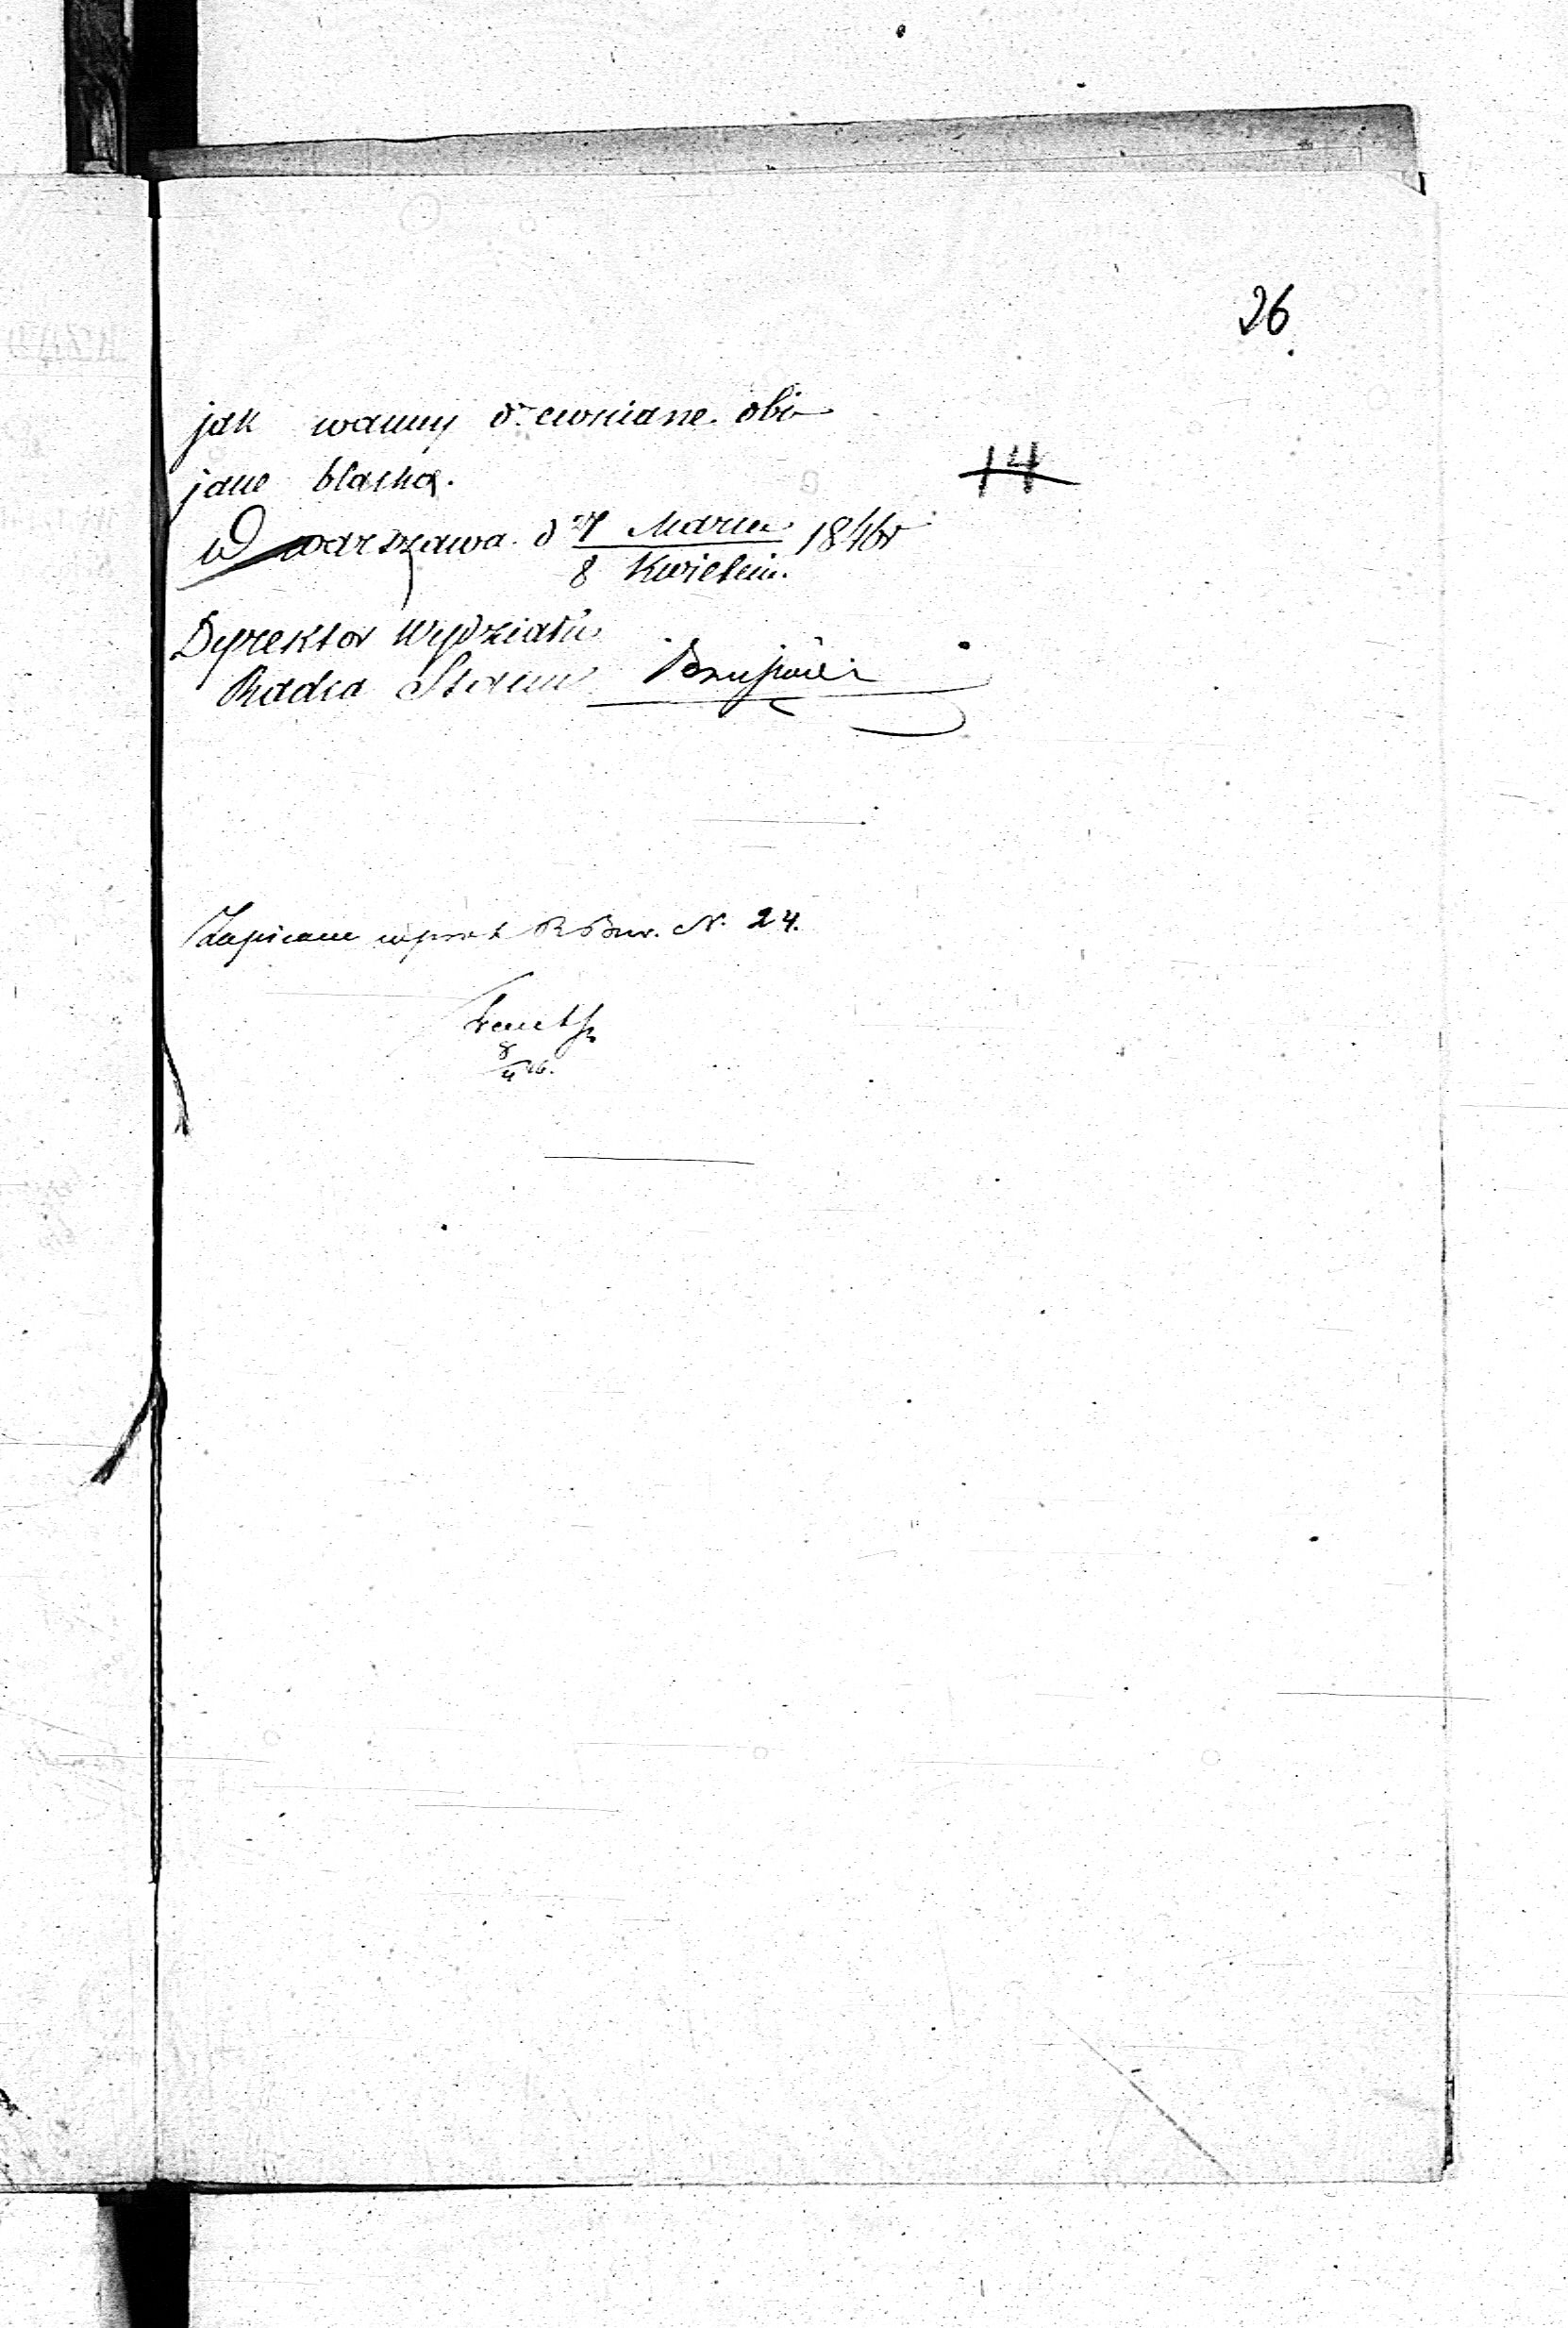 26
jak wanny drewniane obi-
jane blachą.
14
w Warszawie d 27 Marca 1846r
8 Kwietnia
Dyrektor Wydziału
Radca Stanu
Zapisane w prot R Bud. N. 24.
8/4 46.